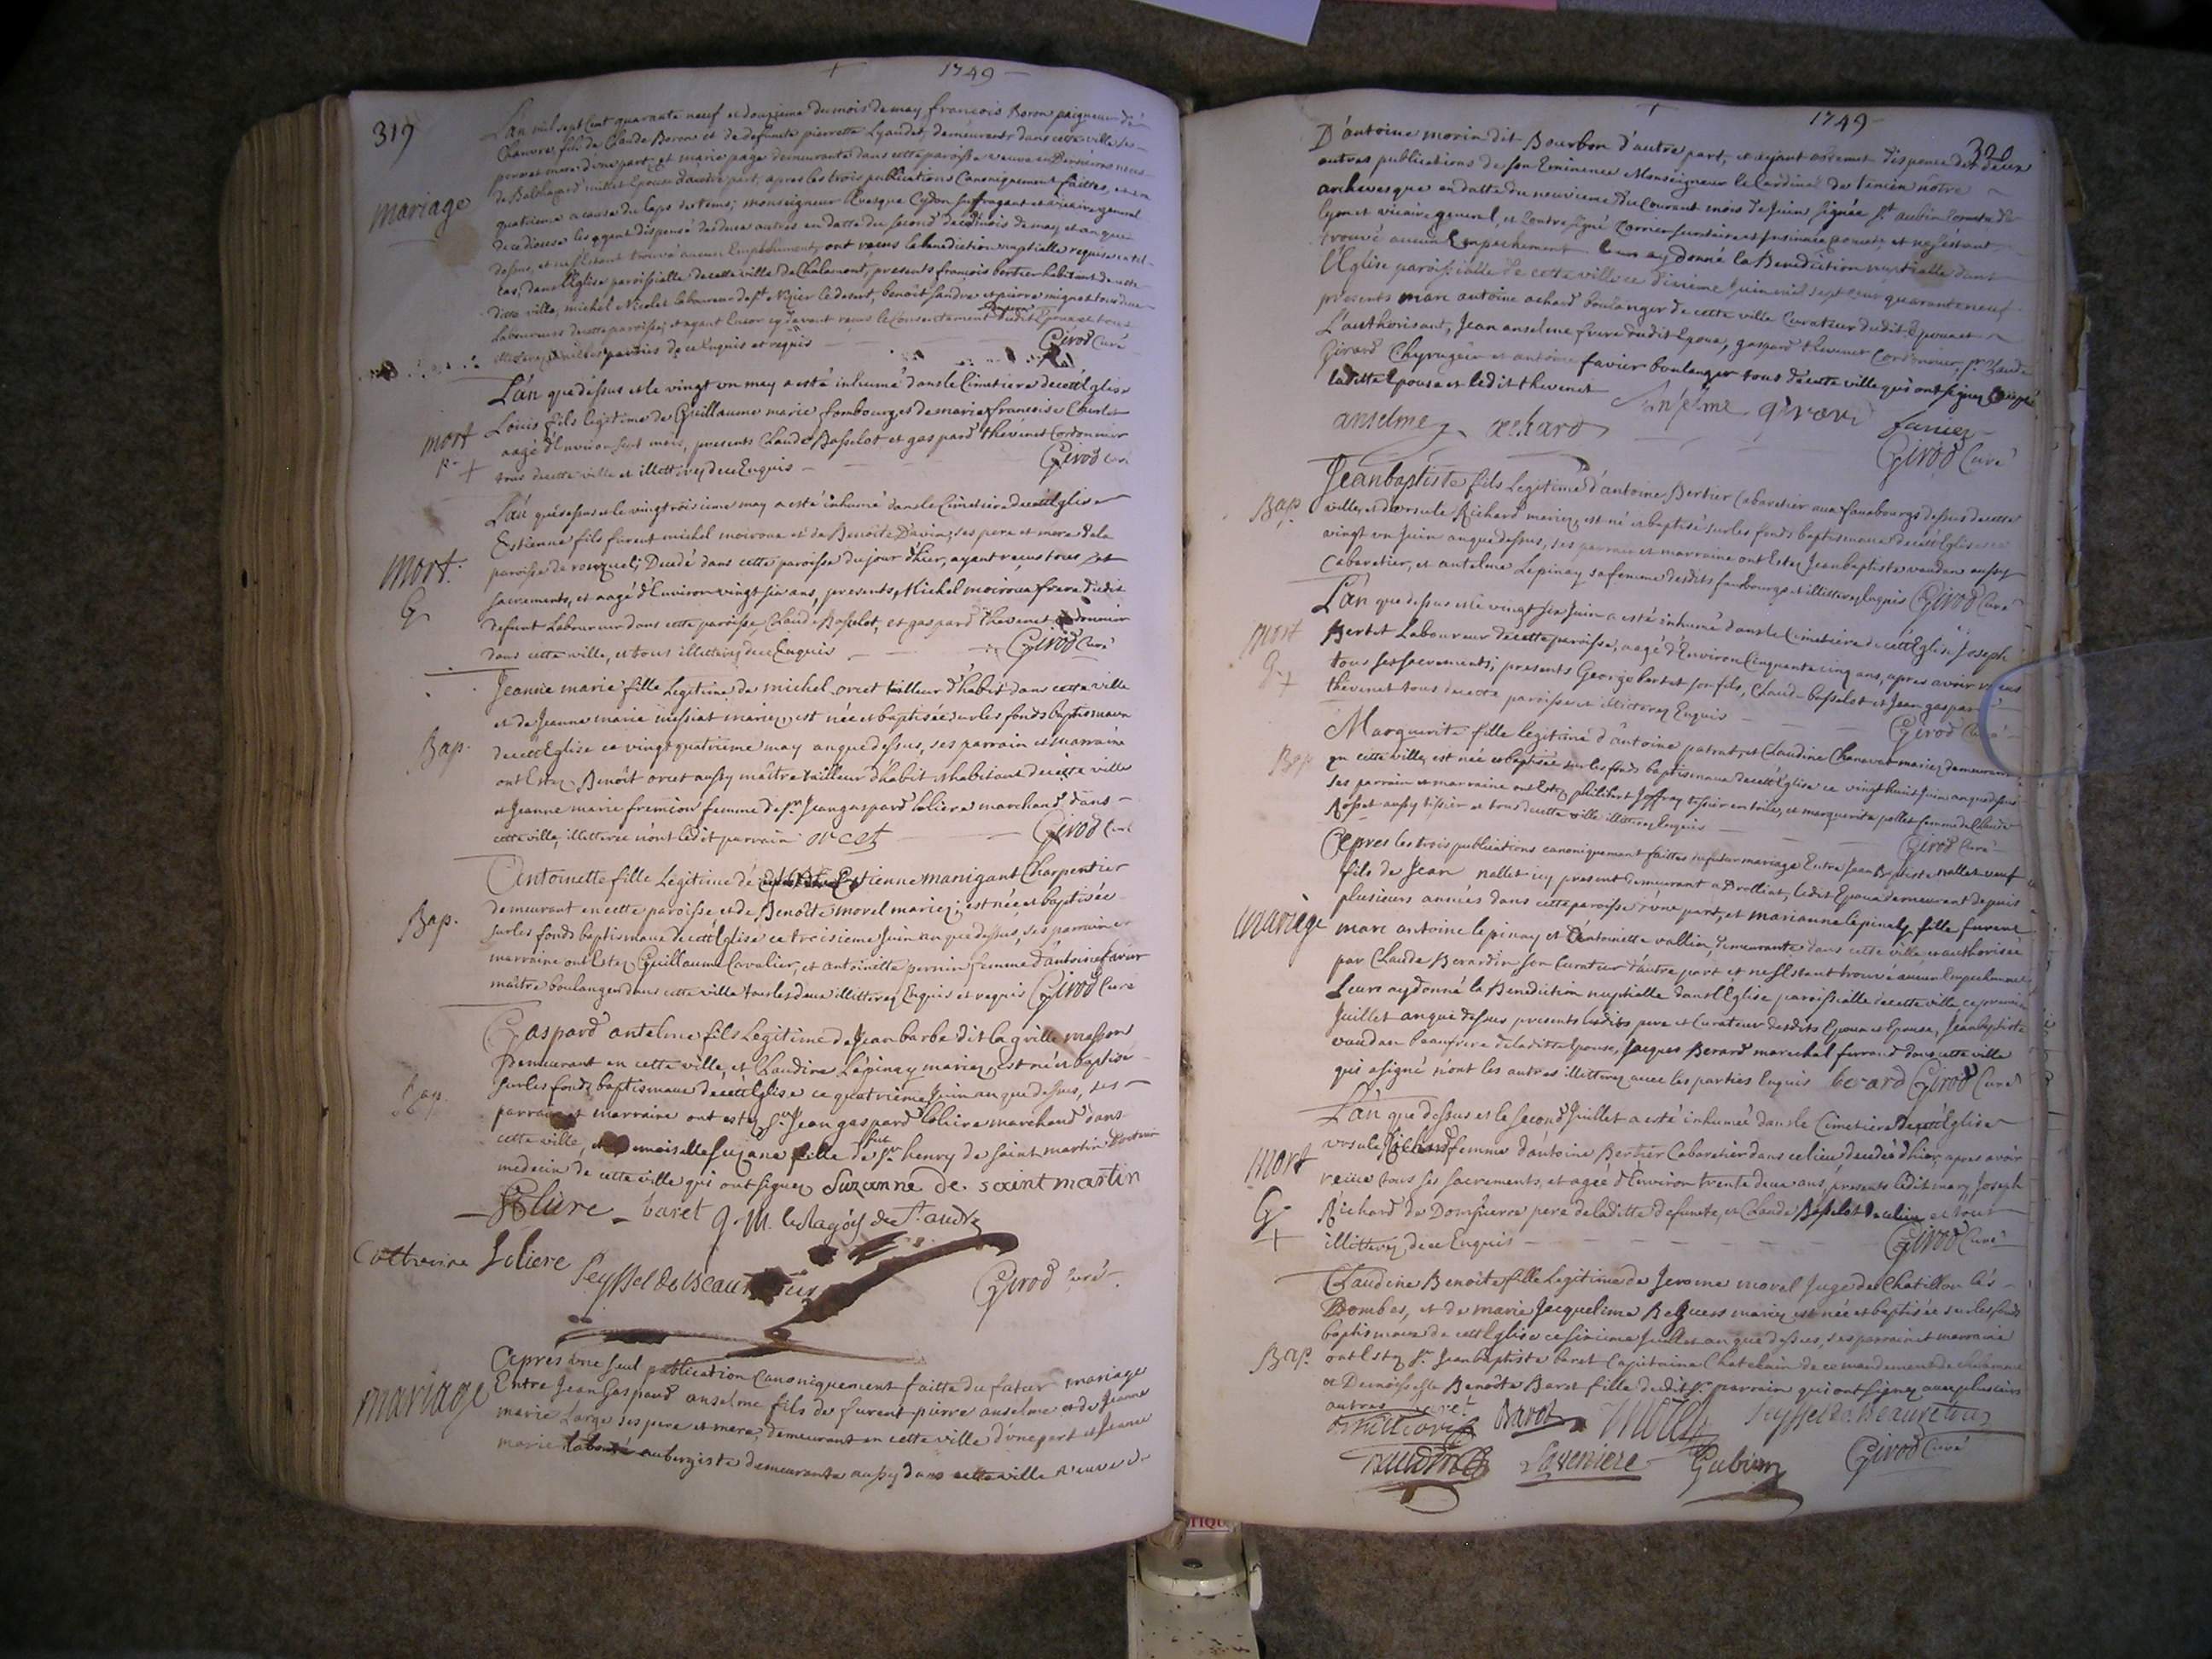 + 1749 -
319
mariage
L'an mil sept Cent quarante neuf et douzieme du mois de may francois Boron peigneur de
Chanvre, fils de Claude Boron et de defunte pierrette Lyaudet, demeurants dans cette ville ses
pere et mere d'une part, et marie page demeurante dans cette paroisse veuve en
de Balthazard millet Epouse d'autre part, apres les trois publications Canoniquement faittes, et
quatrieme a cause du laps de tems; monseigneur Evesque Cydon suffragant et vicaire general
de ce diocese les ayent dispensé des deux autres en datte du second de ce mois de may et an que
dessus, et ne s'estant trouvé aucun Empechement, ont reçus la benediction nuptialle requise en tel
cas, dans l'Eglise paroissialle de cette ville de Chalamont, presents francois bertier habitant de cette
ditte ville, michel Nicolet laboureur de st Nizier le desert, benoit sandre et pierre mignat tous deux
Laboureurs de cette paroisse, et ayant Encor cy devant reçus le Consentement dudit Epoux et tous
illitterez parties de ce Enquis et requis Girod Curé
mort
+
L'an que dessus et le vingt un may a esté inhumé dans le Cimetiere de cett Eglise
Louis fils legitime de Guillaume marie fombourg et de marie francoise Charlet
aagé d'Environ sept mois, presents Claude Basselot et gaspard thevenet Cordonnier
tous de cette ville et illitterez de ce Enquis Girod Curé
mort.
G
L'an que dessus et le vingt troisieme may a esté inhumé dans le Cimetiere de cett Eglise
Estienne fils furent michel moiroux et de Benoite Davin, ses pere et mere de la
paroisse de ronzuel, Decedé dans cette paroisse du jour d'hier, ayant reçus tous ses
sacrements, et aagé d'Environ vingt six ans, presents, Michel moiroux frere dudit
defunt Laboureur dans cette paroisse, Claude Basselot, et gaspard thevenet Cordonnier
dans cette ville, et tous illitterez de ce Enquis Girod Curé
Bap.
Jeanne marie fille Legitime de michel orcet tailleur d'habit dans cette ville
et de Jeanne marie missiat mariez, est née et baptisée sur les fonds baptismaux
de cett Eglise ce vingt quatrieme may an que dessus, ses parrain et marraine
ont Estez Benoit orcet aussy maitre tailleur d'habit et habitant de cette ville
et Jeanne marie fremion femme de sr. Jean gaspard Soliere marchand dans
cette ville, illitteree n'ont ledit parrain orcet Girod Curé
Bap.
Antoinette fille Legitime de Estienne manigant Charpentier
demeurant en cette paroisse et de Benoite morel mariez, est née et baptisée
sur les fonds baptismaux de cett Eglise ce troisieme Juin an que dessus, ses parrain et
marraine ont Estez Guillaume Cavalier, et antoinette perrin femme d'antoine favier
maitre boulanger dans cette ville tous les deux illitterez Enquis et requis Girod Curé
Bap.
Gaspard antelme fils Legitime de Jean barbe dit la grille masson
Demeurant en cette ville, et Claudine Lépinay mariez, est né et baptisé
sur les fonds baptismaux de cett Eglise ce quatrieme Juin an que dessus, ses
parrain et marraine ont estez sr. Jean gaspard Soliere marchand dans
cette ville, et Demoiselle Suzane fille de fut sr henry de saint martin Docteur
medecin de cette ville qui ont signez Suzanne de saint martin
Solière baret g. M. st. andré
Catherine Soliere Seyssel de Beau Girod Curé.
mariage
Apres une seul publication Canoniquement faitte du futur mariage
Entre Jean Gaspard anselme fils de furent pierre anselme et de Jeanne
marie Large ses pere et mere, demeurant en cette ville d'une part et Jeanne
marie aubergiste demeurante aussy dans cette ville veuve
+ 1749
320
D'antoine morin dit Bourbon d'autre part, et ayant obtenut dispence des deux
autres publications de son Eminence Monseigneur le Cardinal de tencin notre
archevesque en datte du neuvieme du Courant mois de Juin, signée st aubin Comte de
Lyon et vicaire general, et Contresigné Carrier secretaire et Insinuée et ne s'estant
trouvé aucun Empechement leur ay donné la Benediction nuptialle dans
l'Eglise paroissialle de cette ville ce dixieme Juin mil sept cent quarante neuf
presents marc antoine achard boulanger de cette ville Curateur dudit Epoux et
L'authorisant, Jean anselme frere dudit Epoux, gaspard thevenet Cordonnier, sr. Claude
Girard Chyrugien et antoine favier boulanger tous de cette ville qui ont signez Excepté
laditte Epouse et ledit thevenet Anselme girard
anselme achard favier
Girod Curé
Bap.
Jean baptiste fils Legitime d'antoine Bertier Cabaretier aux fauxbourgs dessus de cette
ville, et d'ursule Richard mariez, est né et baptisé sur les fonds baptismaux de cett Eglise ce
vingt un Juin an que dessus, ses parrain et marraine ont Estez Jean baptiste vaudan aussy
Cabaretier, et antelme Lepinay sa femme desdits fauxbourgs et illitterez Enquis Girod Curé
mort
G
+
L'an que dessus et le vingt six Juin a esté inhumé dans le Cimetiere de cett Eglise Joseph
Bertet Laboureur de cette paroisse, aagé d'Environ Cinquante cinq ans, apres avoir reçus
tous ses sacrements, presents George bertet son fils, Claude basselot et Jean gaspard
thevenet tous de cette paroisse et illitterez Enquis Girod Curé
Bap
Marguerite fille legitime d'antoine patrat, et Claudine Chanavat mariez demeurant
en cette ville, est née et baptisée sur les fonds baptismaux de cett Eglise ce vingt huit Juin an que dessus
ses parrain et marraine ont Estez philibert Joffray tissier en toile, et marguerite pollet femme de Claude
Rosset aussy tissier et tous de cette ville illitterez Enquis Girod Curé
mariage
Apres les trois publications canoniquement faittes du futur mariage Entre Jean Baptiste nallet veuf
fils de Jean nallet icy present demeurant a Drolliat, ledit Epoux demeurant depuis
plusieurs années dans cette paroisse d'une part, et marianne lépinay fille furent
marc antoine lepinay et d'antoinette vallin, demeurante dans cette ville, et authorisée
par Claude Berardin son Curateur d'autre part et ne s'estant trouvé aucun Empechement
Leurs ay donné la Benediction nuptialle dans l'Eglise paroissialle de cette ville ce premier
Juillet an que dessus presents lesdits pere et Curateur desdits Epoux et Epouse, Jean baptiste
vaudan beaufrere de laditte Epouse, Jacques Berard marechal ferrand dans cette ville
qui a signé n'ont les autres illitterez avec les parties Enquis berard Girod Curé
mort
G
+
L'an que dessus et le second Juillet a esté inhumée dans le Cimetiere de cett Eglise
ursule Richard femme d'antoine Bertier Cabaretier dans ce lieu decedée d'hier, apres avoir
reçus tous ses sacrements, et agée d'Environ trente deux ans, presents ledit mary, Joseph
Richard de Dompierre pere de laditte defunte, et Claude Basselot de ce lieu et tous
illitterez de ce Enquis Girod Curé
Bap.
Claudine Benoite fille Legitime de Jerome morel Juge de Chatillon lès
Dombes, et de marie Jacqueline mariez est née et baptisée sur les fonds
baptismaux de cett Eglise ce sixieme Juillet an que dessus, ses parrain et marraine
ont Estez sr. Jean baptiste baret Capitaine Chatelain de ce mandement de chalamont
et Demoiselle Benoite Baret fille dudit sr. parrain qui ont signez avec plusieurs
autres baret
Baret Morel Seyssel de Beauretour
Laveniere Gubian Girod Curé